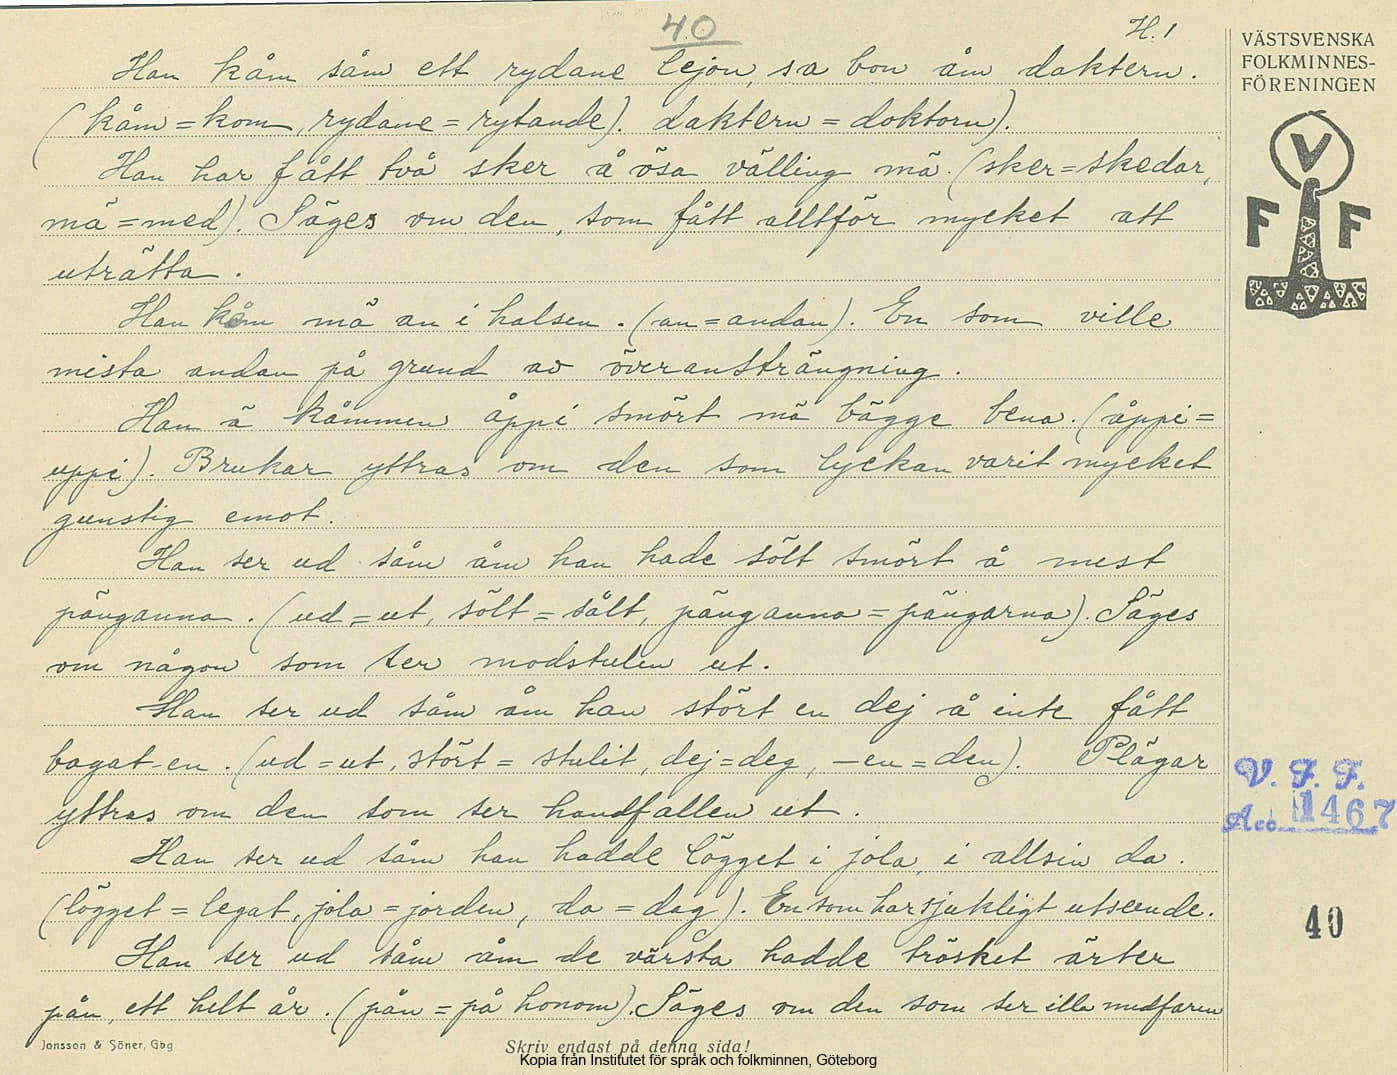 40
H. 1
VÄSTSVENSKA
FOLKMINNES-
FÖRENINGEN
V
F F
Han kåm såm ett rydane lejon, sa bon åm daktern.
(kåm = kom, rydane = rytande). daktern = doktorn).
Han har fått två sker å ösa välling mä. (sker = skedar,
mä = med). Säges om den, som fått alltför mycket att
uträtta.
Han kåm mä an i halsen. (an = andan). En som ville
mista andan på grund av överansträngning.
Han ä kåmmen åppi smört mä bägge bena. (åppi =
uppi). Brukar yttras om den som lyckan varit mycket
gunstig emot.
Han ser ud såm åm han hade sölt smört å mest
pänganna. (ud = ut, sölt = sålt, pänganna = pängarna). Säges
om någon som ser modstulen ut.
Han ser ud såm åm han stört en dej å inte fått
bagat-en. (ud = ut, stört = stulit, dej = deg, -en = den). Plägar
yttras om den som ser handfallen ut.
Han ser ud såm han hadde lögget i jola, i allsin da.
(lögget = legat, jola = jorden, da = dag). En som har sjukligt utseende.
Han ser ud såm åm de värsta hadde trösket ärter
pån, ett helt år. (pån = på honom). Säges om den som ser illa medfaren
V. F. F.
Acc. 1467
40
Jonsson & Söner, Gbg
Skriv endast på denna sida!
Kopia från Institutet för språk och folkminnen, Göteborg